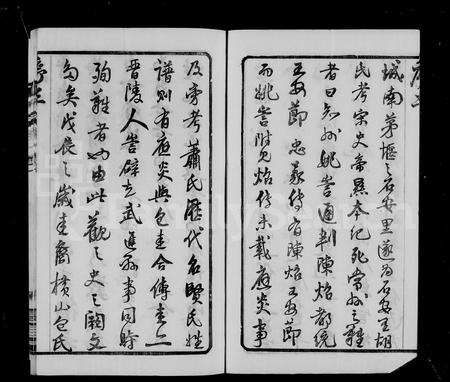 城南茅堰之石安里遂為石安王胡
氏考宋史帝㬎本紀死常州之難
者曰知州姚訔通判陳炤都統
王安節忠義傳有陳炤王安節
而姚訔附見炤傳未載應炎事
及旁考蕭氏歷代名賢氏姓
譜則有應炎與包圭合傳圭亦
晉陵人訔辟立武進縣事同時
殉難者也由此觀之史之闕文
多矣戊辰之歲圭裔橫山包氏